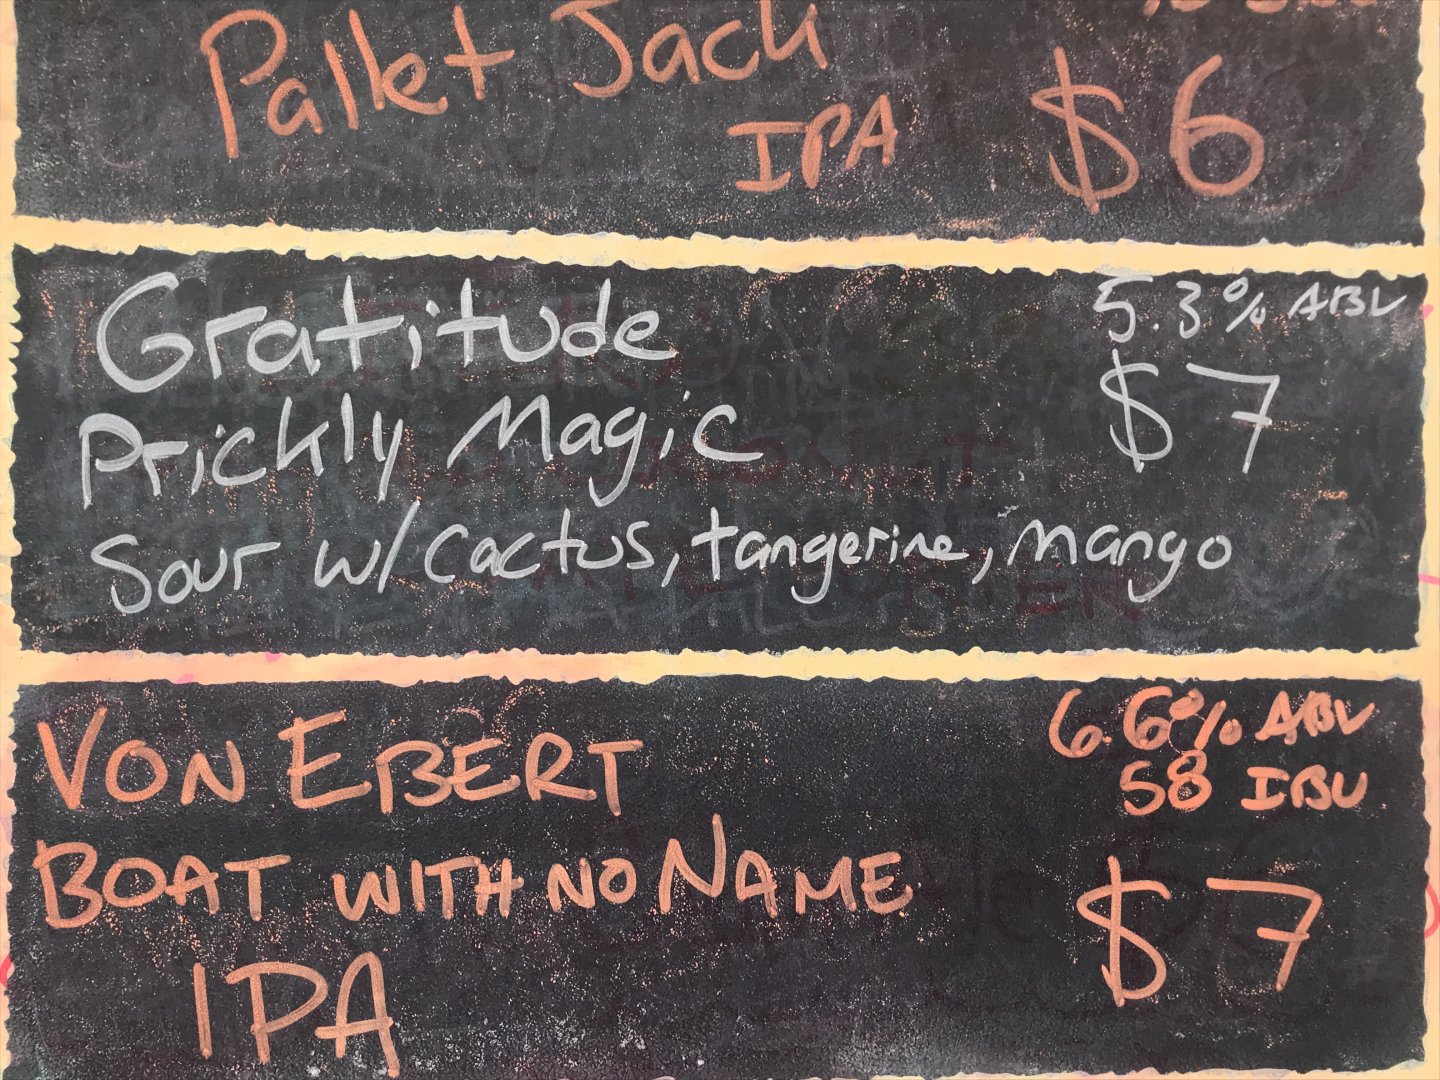 Pallet Jack
IPA
$6
Gratitude
5.3% ABV
Prickly Magic
$7
Sour w/cactus, tangerine, mango
VON EBERT
6.6% ABV
58 IBU
BOAT WITH NO NAME
$7
IPA